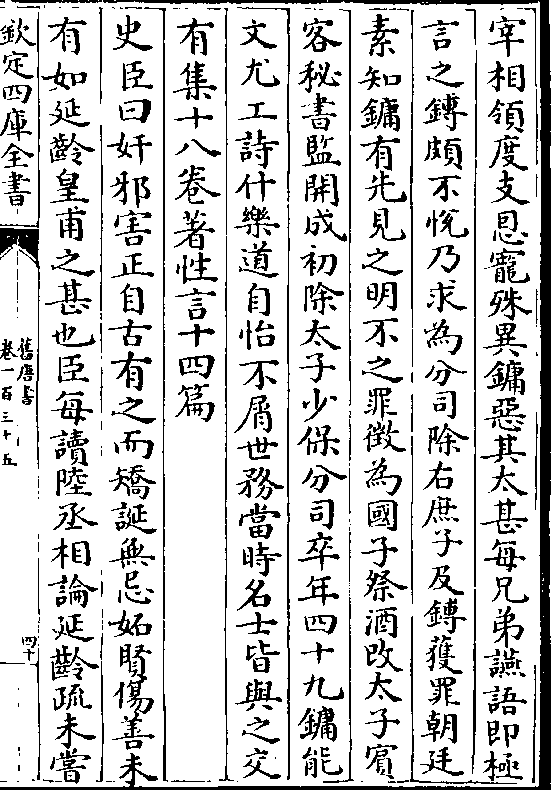 宰相領度支恩寵殊異鏞惡其太甚每兄弟讌語即極
言之鎛頗不悅乃求為分司除右庶子及鎛獲罪朝廷
素知鏞有先見之明不之罪徵為國子祭酒改太子賓
客秘書監開成初除太子少保分司卒年四十九鏞能
文尤工詩什樂道自怡不屑世務當時名士皆與之交
有集十八卷著性言十四篇
史臣曰奸邪害正自古有之而矯誕無忌妬賢傷善未
有如延齡皇甫之甚也臣每讀陸丞相論延齡疏未嘗
欽定四庫全書
舊唐書
卷一百三十五
四十